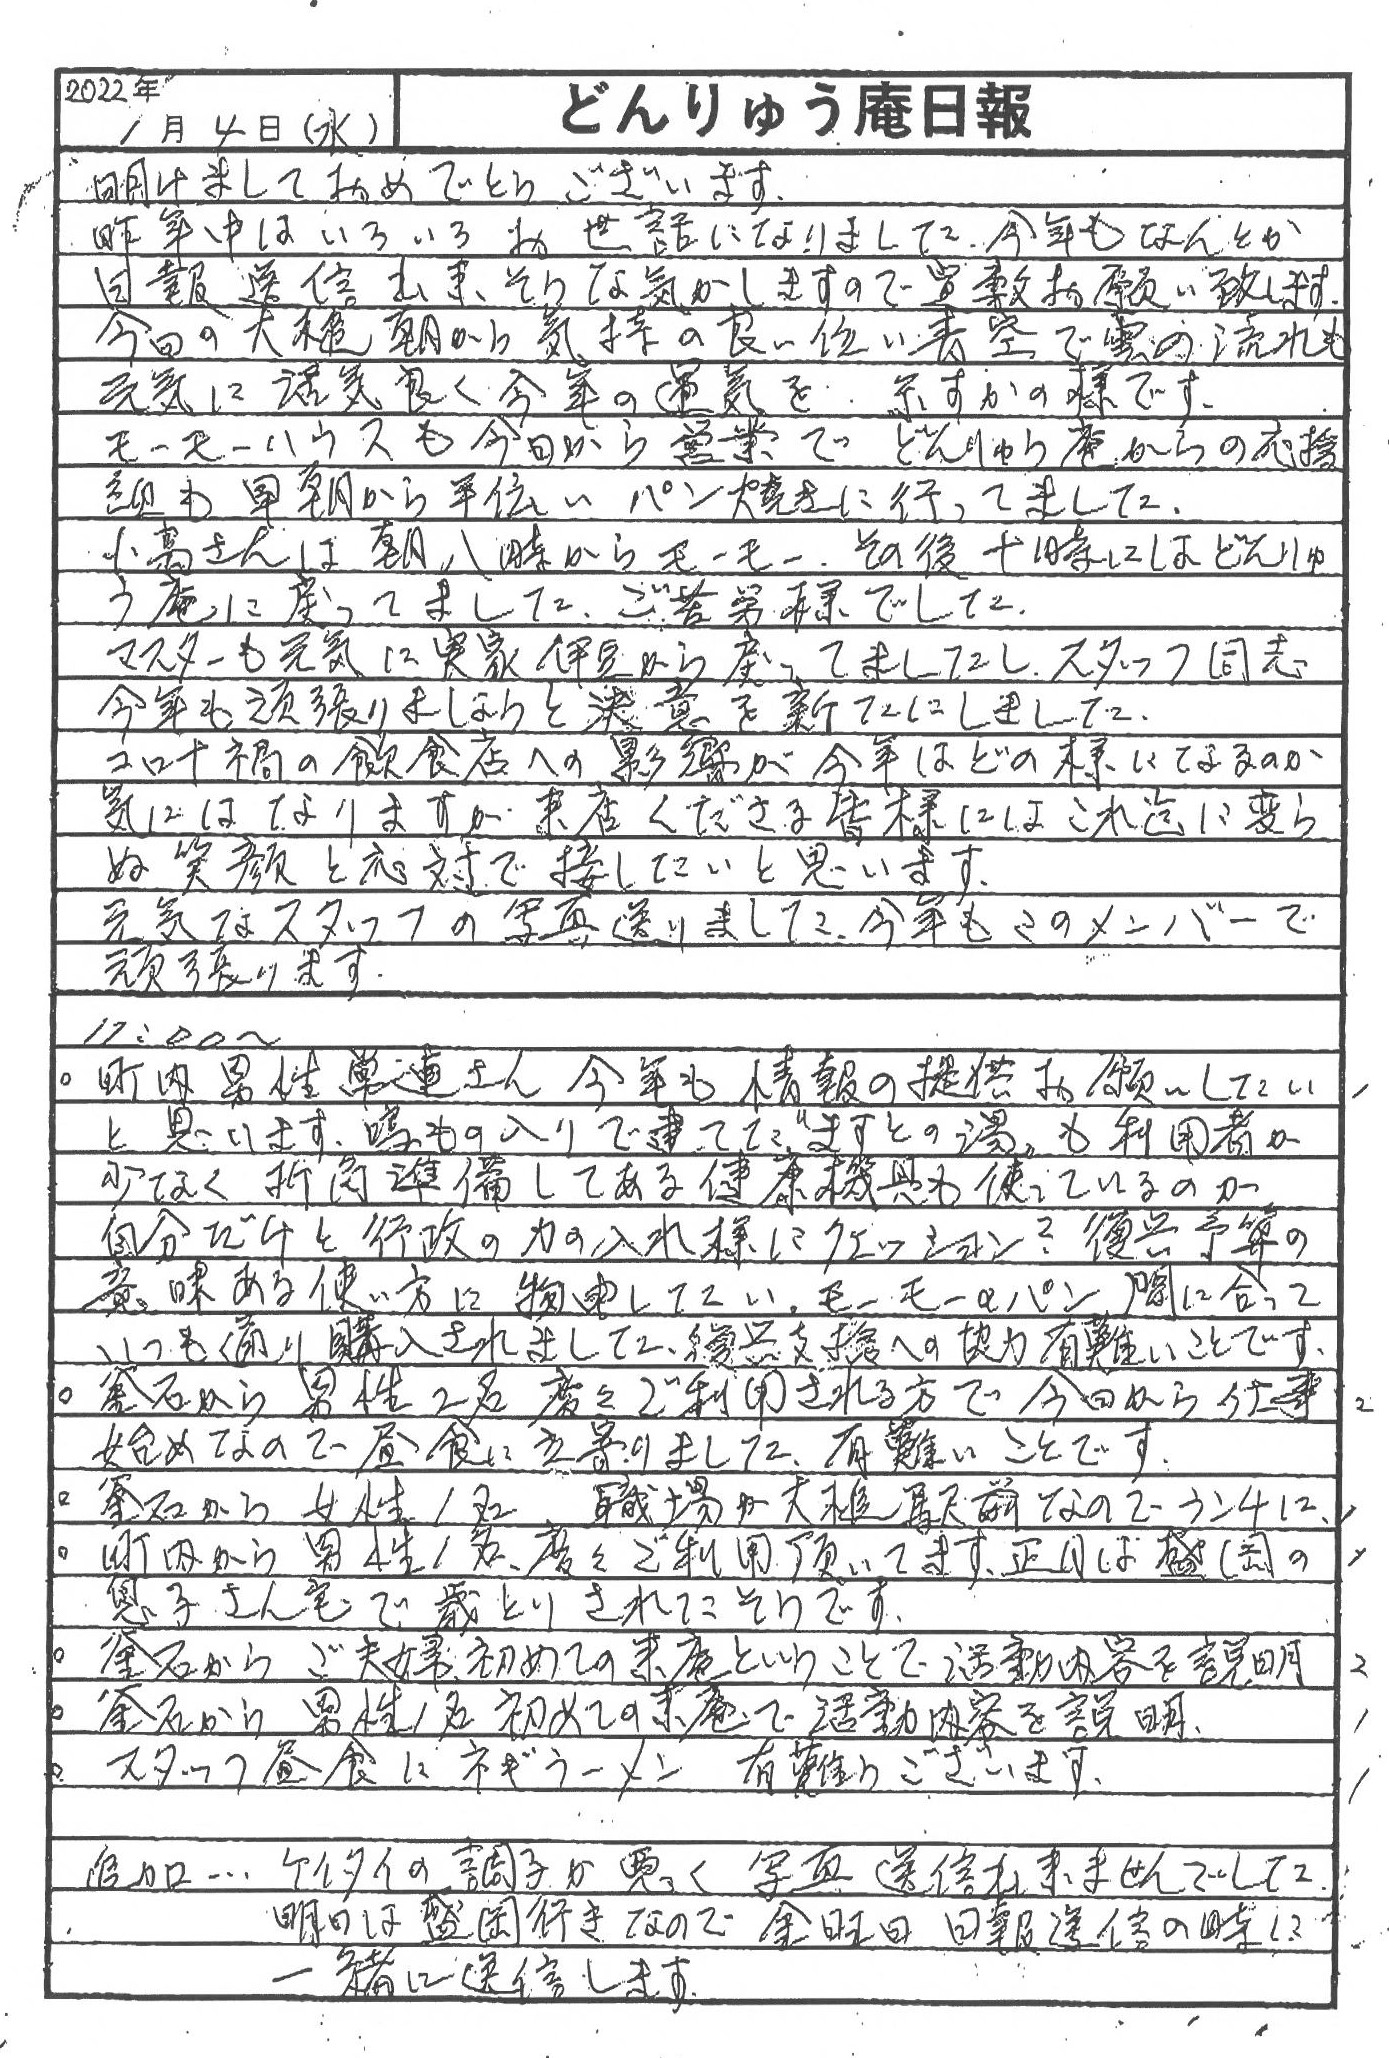 2022年
1月4日(水)
どんりゅう庵日報
明けましておめでとうございます.
昨年中はいろいろお世話になりました.今年もなんとか
日報送信出来そうな気がしますので宜敷お願い致します.
今日の大槌朝から気持の良い位い青空で雲の流れも
元気に活気良く今年の運気を示すかの様です.
モーモーハウスも今日から営業でどんりゅう庵からの応援
組も早朝から手伝いパン焼きに行ってました.
小高さんは朝八時からモーモー.その後十時にはどんりゅ
う庵に戻ってました.ご苦労様でした.
マスターも元気に実家伊豆から戻ってましたし.スタッフ同志
今年も頑張りましょうと決意を新たにしました.
コロナ禍の飲食店への影響が今年はどの様になるのか
気にはなりますが来店くださる皆様にはこれ迄に変ら
ぬ笑顔と応対で接したいと思います.
元気なスタッフの写真送りました.今年もこのメンバーで
頑張ります.
12:00〜
○ 町内男性常連さん 今年も情報の提供お願いしたい 1
と思います.鳴もの入りで建てた"ますとの湯"も利用者が
少なく折角準備してある健康機具も使っているのが
自分だけと行政の力の入れ様にクエッション?復興予算の
意味ある使い方に物申したい。モーモーのパン間に合って
いつも通り購入されました.復興支援への協力有難いことです.
○ 釜石から男性2名度々ご利用される方で今日から仕事 2
始めなので昼食に立寄りました.有難いことです.
○ 釜石から女性1名 職場が大槌駅前なのでランチに. 1
○ 町内から男性1名.度々ご利用頂いてます.正月は盛岡の 1
息子さん宅で歳とりされたそうです.
○ 釜石からご夫婦.初めての来庵ということで活動内容を説明 2
○ 釜石から男性1名初めての来庵で活動内容を説明. 1
○ スタッフ昼食にネギラーメン 有難うございます. 1
追加… ケイタイの調子が悪く写真送信出来ませんでした.
明日は盛岡行きなので金曜日日報送信の時に
一緒に送信します.